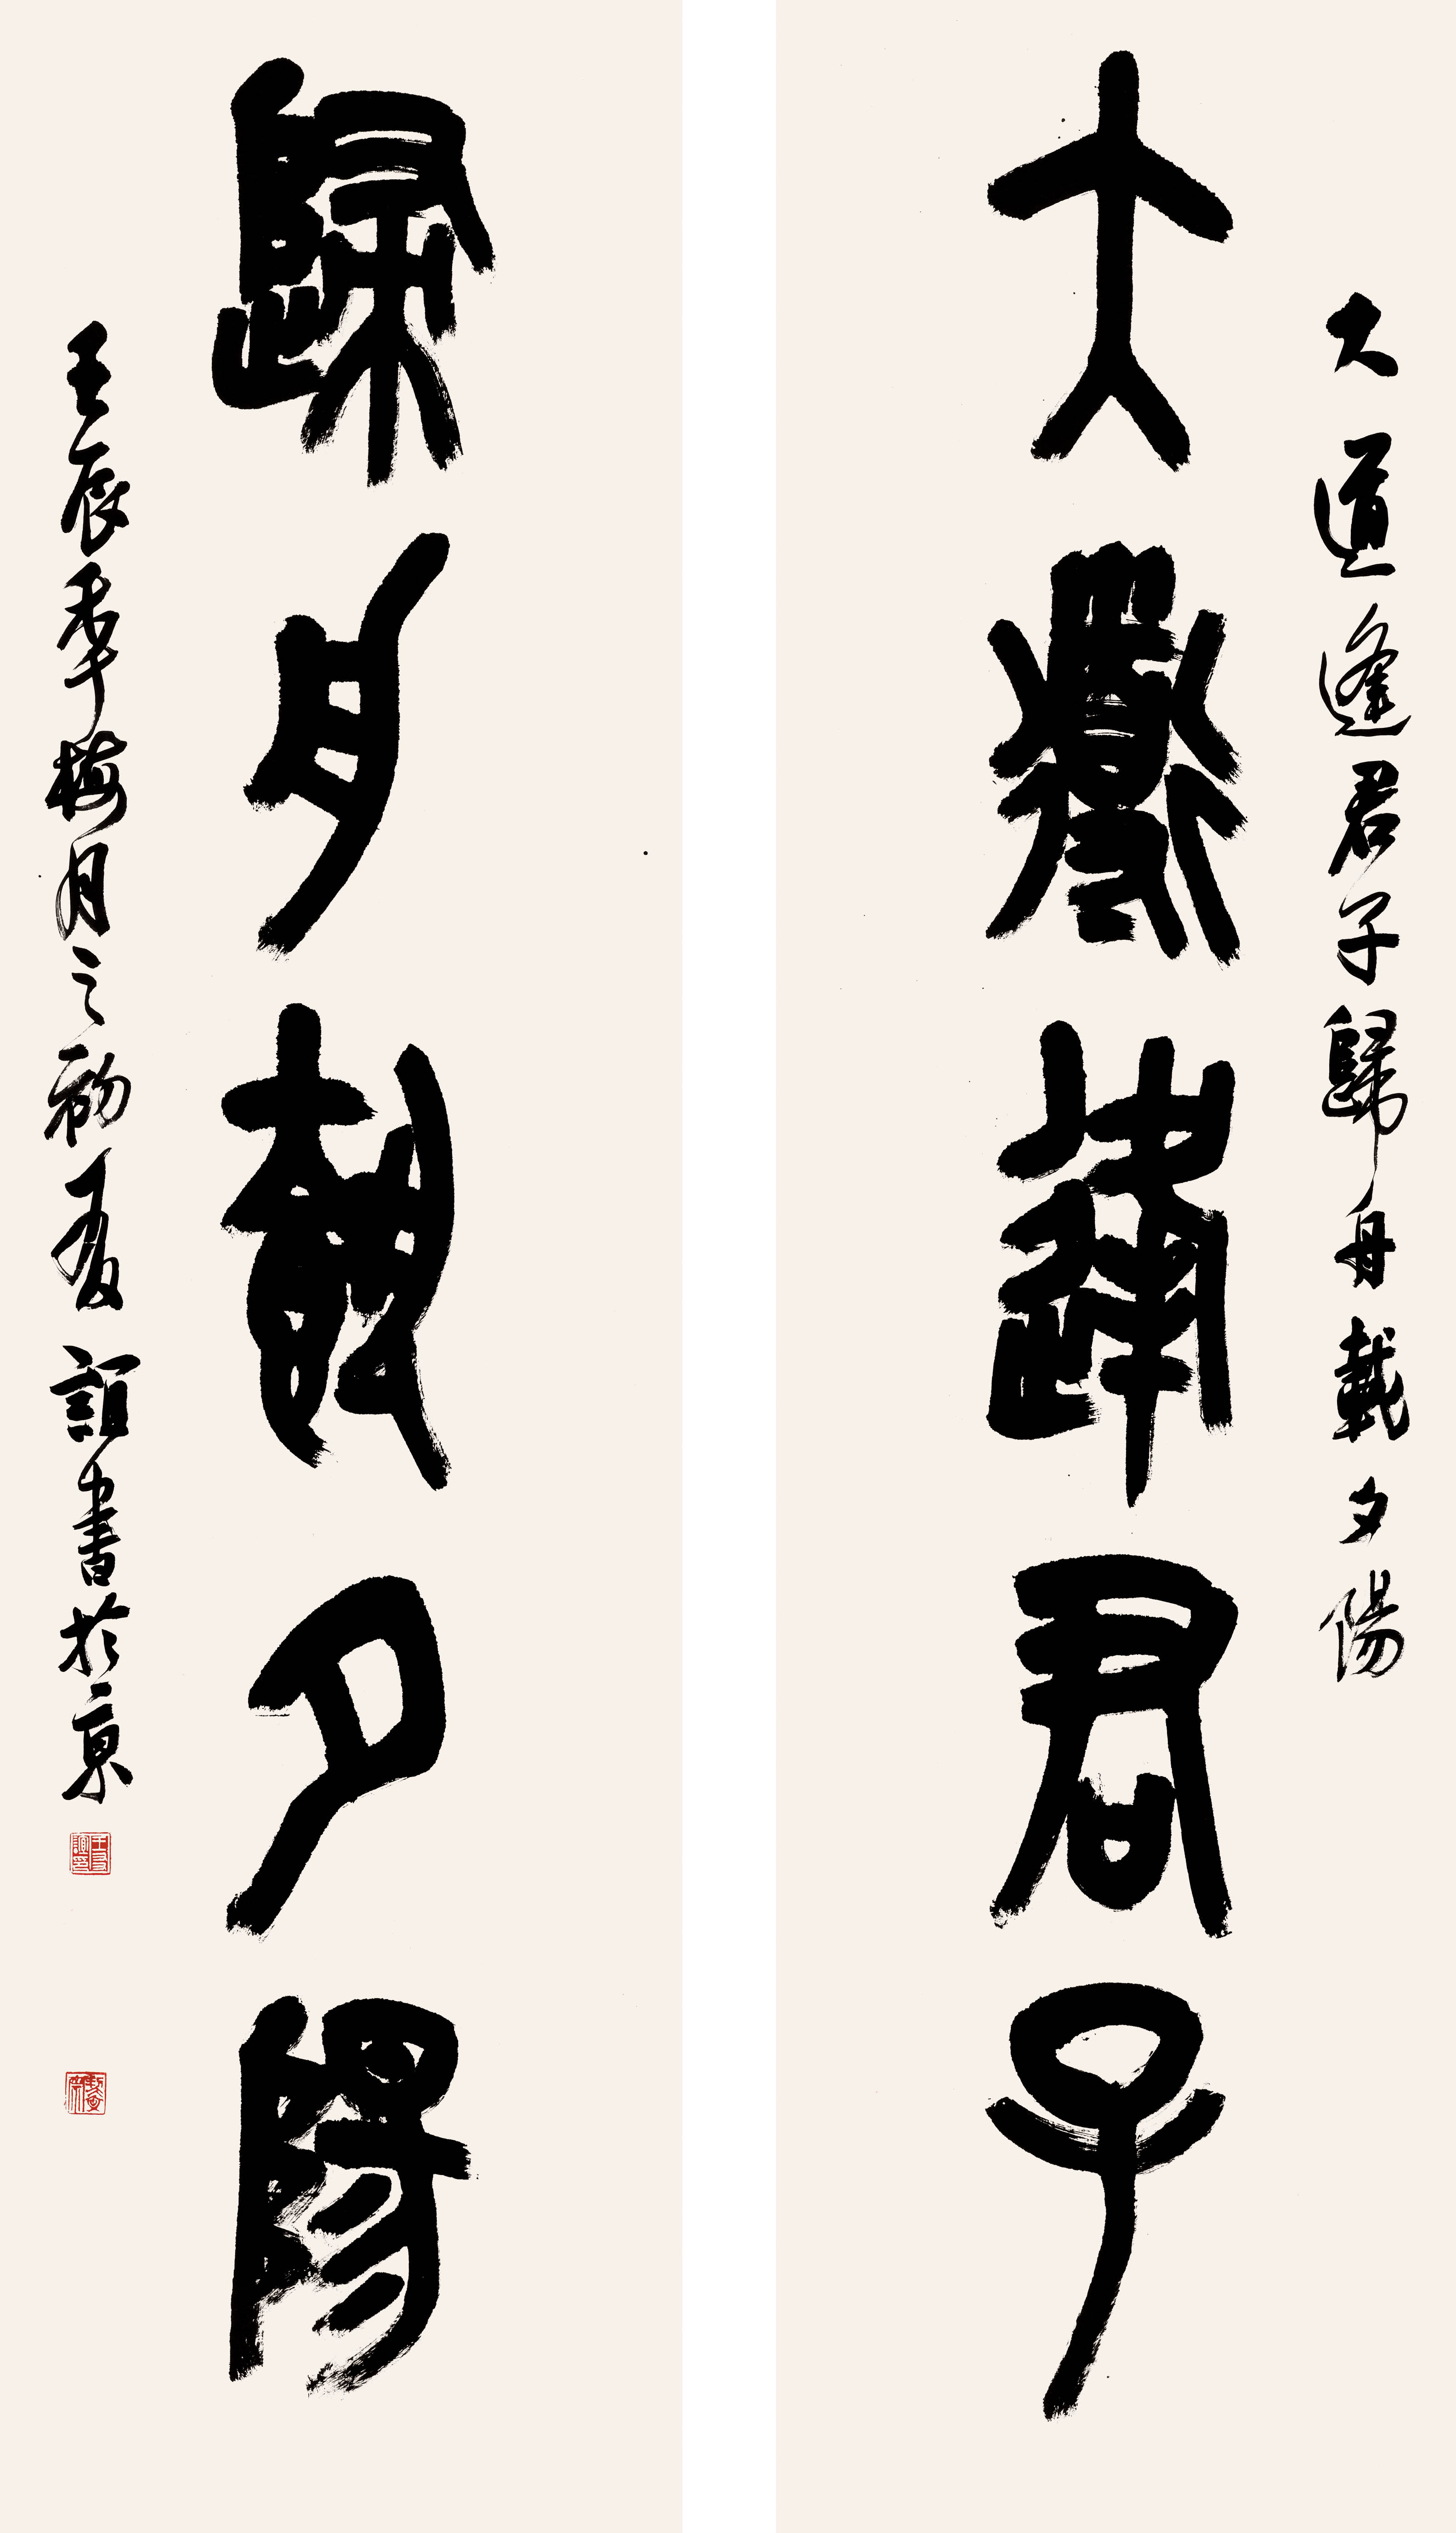 大道逢君子歸舟載夕陽
大道逢君子
歸舟載夕陽
壬辰年梅月之初友誼書於京